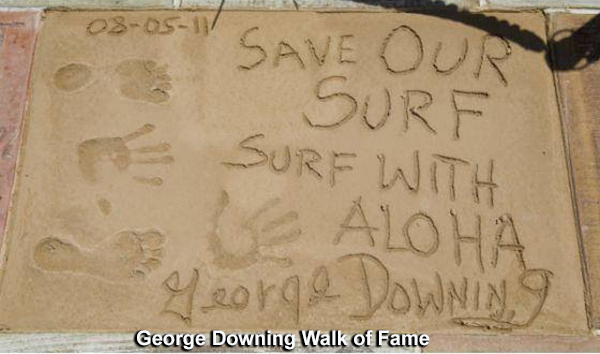 08-05-11
SAVE OUR
SURF
SURF WITH
ALOHA
George Downing
George Downing Walk of Fame